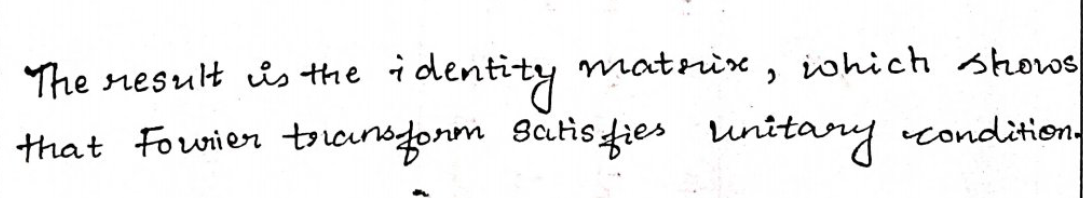 The result is the identity matrix, which shows
that Fourier transform satisfies unitary condition.